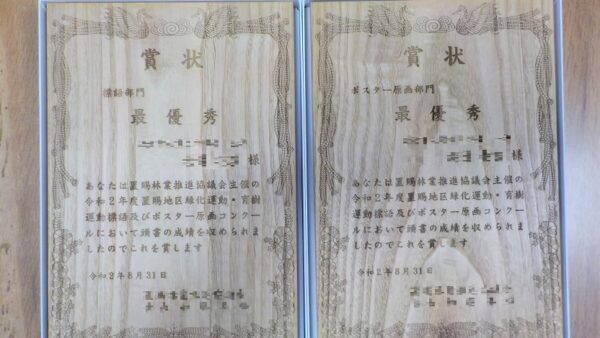 賞状
標語部門
最優秀
様
あなたは置賜林業推進協議会主催の
令和2年度置賜地区緑化運動・育樹
運動標語及びポスター原画コンクー
ルにおいて頭書の成績を収められま
したのでこれを賞します
令和2年8月31日
賞状
ポスター原画部門
最優秀
様
あなたは置賜林業推進協議会主催の
令和2年度置賜地区緑化運動・育樹
運動標語及びポスター原画コンクー
ルにおいて頭書の成績を収められま
したのでこれを賞します
令和2年8月31日